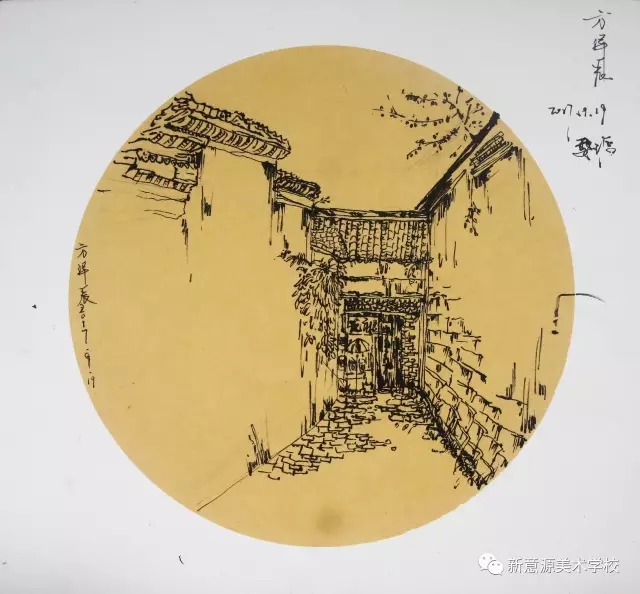 方 辰
2017.9.19
婺源
方 辰 2017.9.19
新意源美术学校